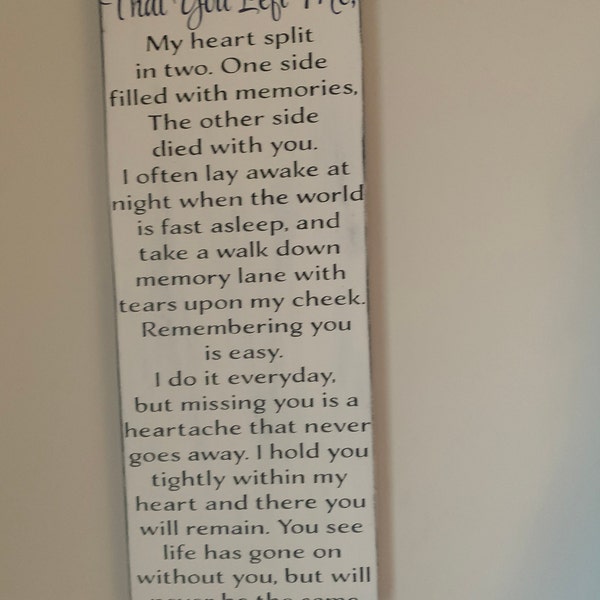 That You Left Me,
My heart split
in two. One side
filled with memories,
The other side
died with you.
I often lay awake at
night when the world
is fast asleep, and
take a walk down
memory lane with
tears upon my cheek.
Remembering you
is easy.
I do it everyday,
but missing you is a
heartache that never
goes away. I hold you
tightly within my
heart and there you
will remain. You see
life has gone on
without you, but will
never be the same